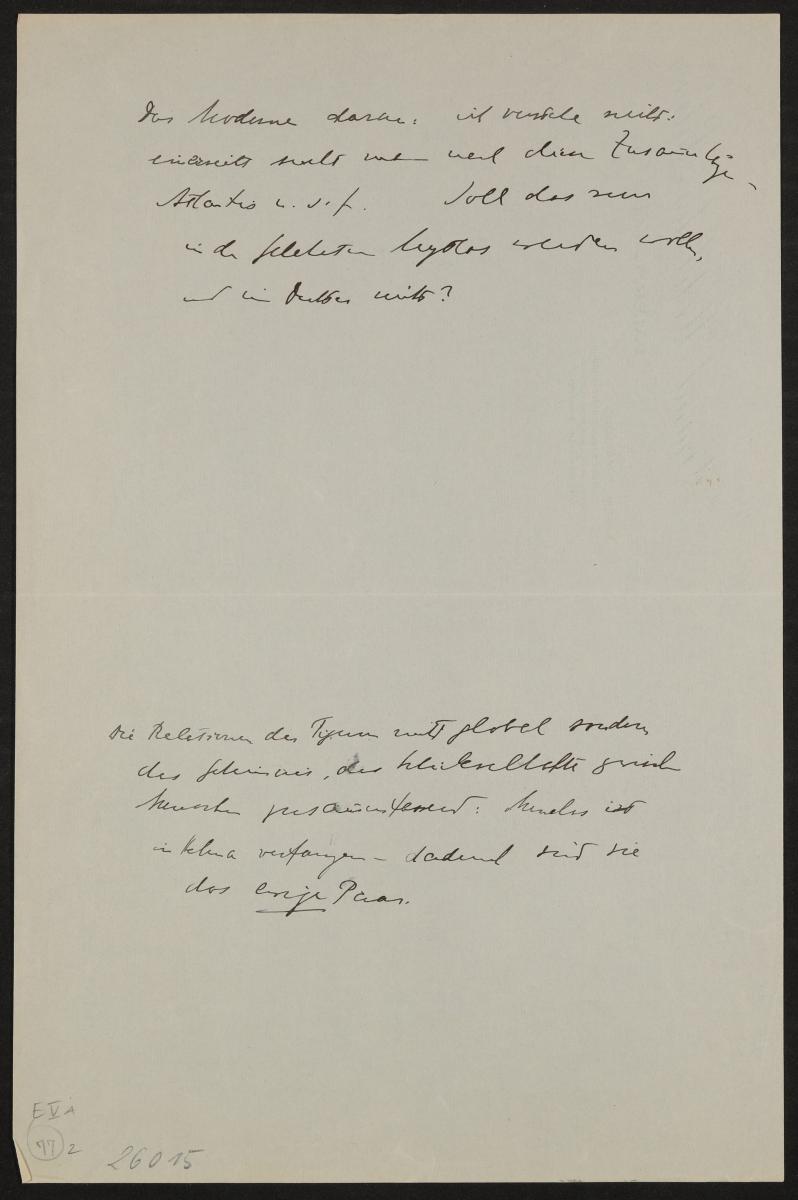 Das Moderne daran: ich verstehe nicht:
einerseits sucht man nach diesen Zusammenhängen,
Atlantis u. s. f. Soll das nun
in der geliebten Mythos werden wollen,
und im Dritten nicht?
Die Relationen der Figuren nicht global sondern
das Geheimnis, das Schicksalhafte zwischen
Menschen zusammenfassend: Menelas ist
in Helena verfangen – dadurch sind sie
das ewige Paar.
E V A
77 2
26015